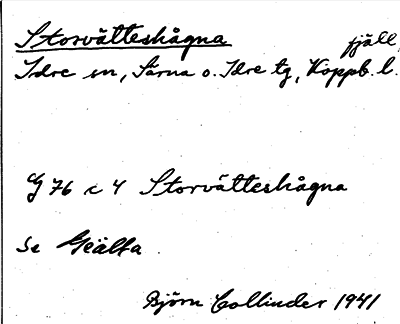 Storvätteshågna fjäll,
Idre sn, Särna o. Idre tg, Koppb. l.
G 76 c 4 Storvätteshågna
Se Geälta
Björn Collinder 1941